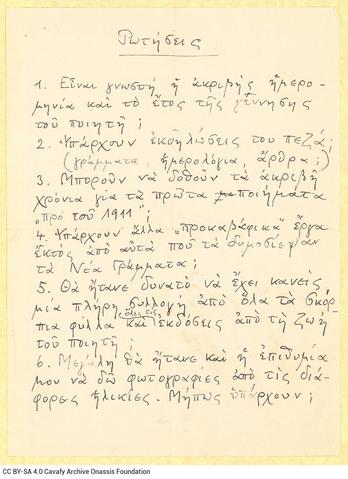 Ἐρωτήσεις
1. Εἶναι γνωστὴ ἡ ἀκριβὴς ἡμερο-
μηνία καὶ τὸ ἔτος τῆς γέννησης
τοῦ ποιητῆ;
2. Ὑπάρχουν ἐκδηλώσεις του πεζά;
(γράμματα, ἡμερολόγια, ἄρθρα;)
3. Μποροῦν νὰ δοθοῦν τὰ ἀκριβῆ
χρόνια γιὰ τὰ πρῶτα ποιήματα
„πρὸ τοῦ 1911";
4. Ὑπάρχουν ἄλλα „προκαβάφικα" ἔργα
ἐκτὸς ἀπὸ αὐτὰ ποὺ τὰ δημοσίεψαν
τὰ Νέα Γράμματα;
5. Θὰ ἤτανε δυνατὸ νὰ ἔχει κανεὶς
μία πλήρη συλλογὴ ἀπὸ ὅλα τὰ σκόρ-
πια φύλλα καὶ ὅλες τὶς ἐκδόσεις ἀπὸ τὴ ζωὴ
τοῦ ποιητῆ;
6. Μεγάλη θὰ ἤτανε καὶ ἡ ἐπιθυμία
μου νὰ δῶ φωτογραφίες ἀπὸ τὶς διά-
φορες ἡλικίες. Μήπως ὑπάρχουν;
CC BY-SA 4.0 Cavafy Archive Onassis Foundation